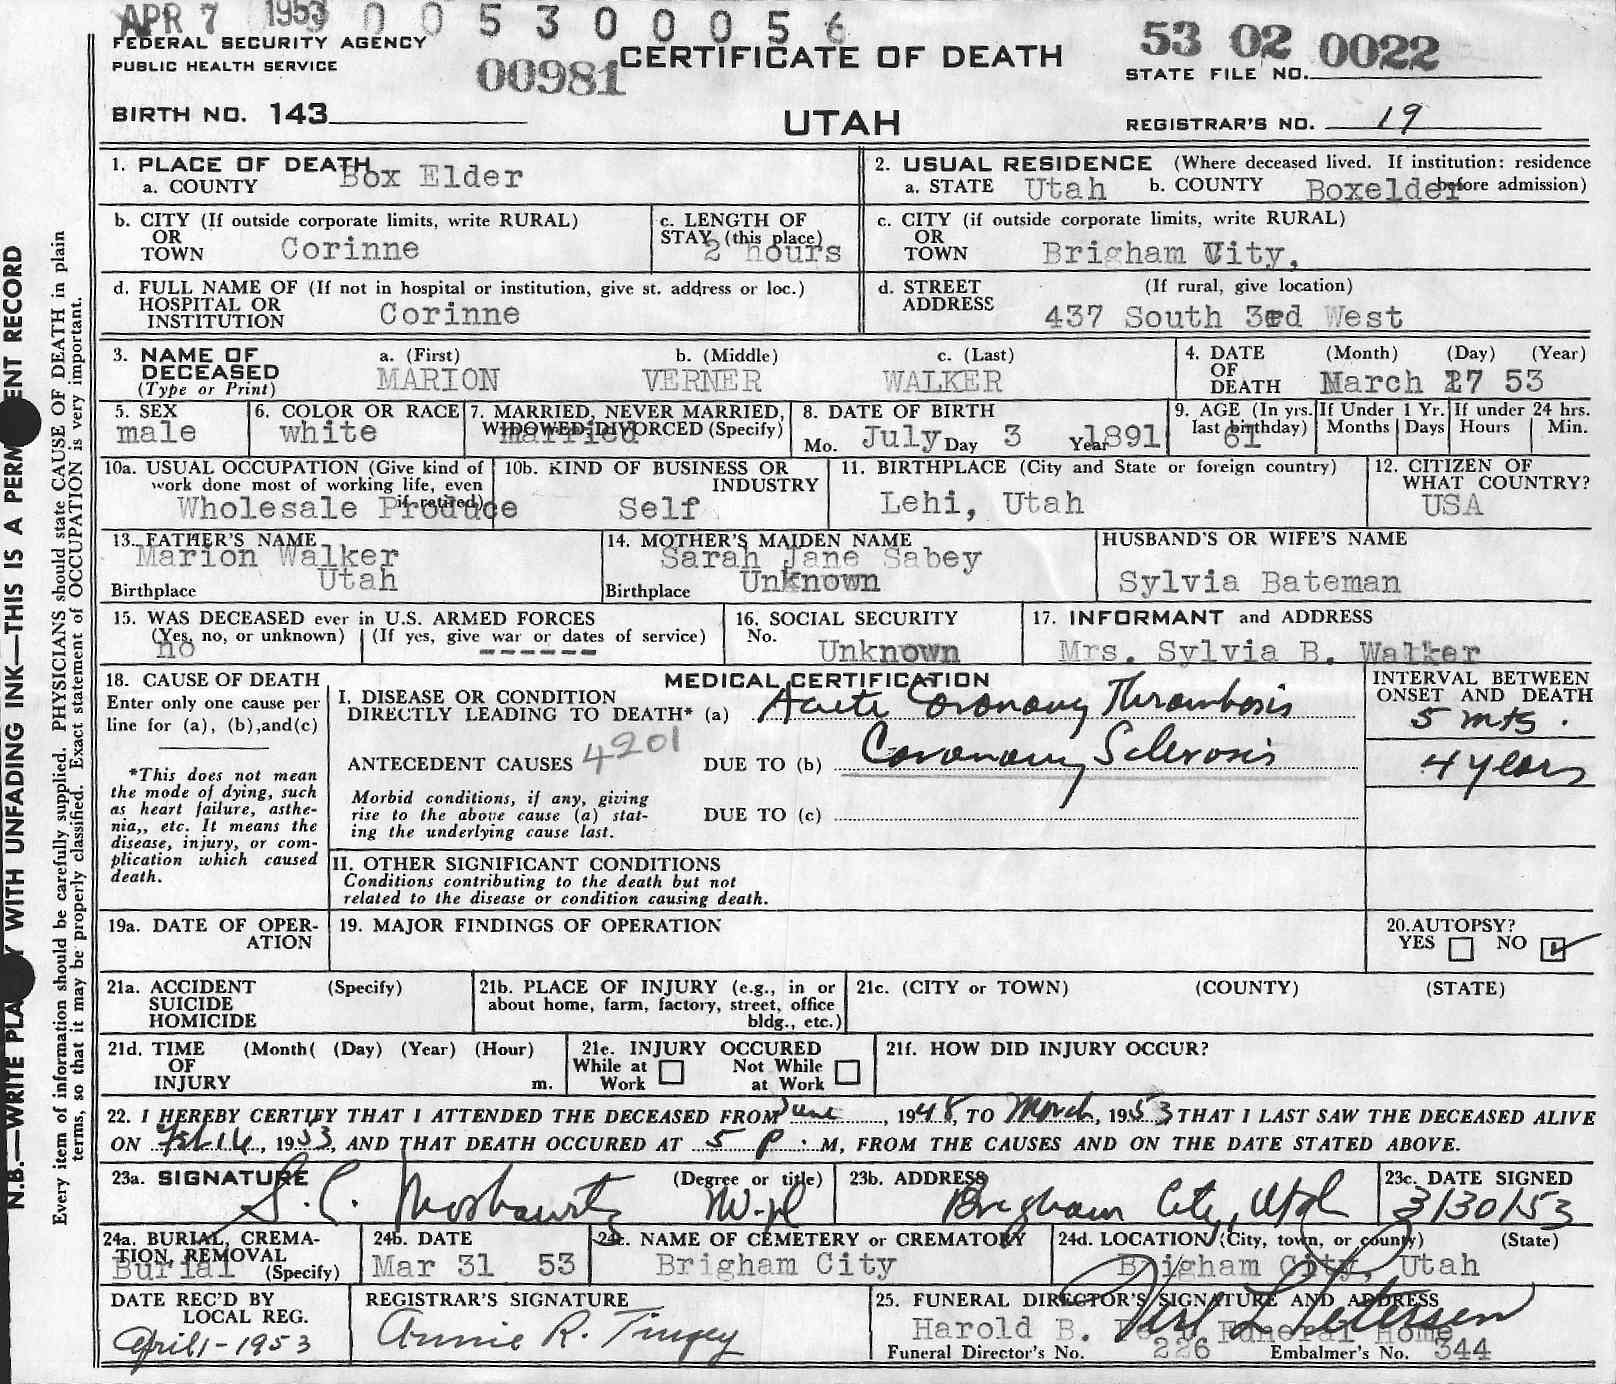 APR 7 1953 0 0 5 3 0 0 0 5 6
FEDERAL SECURITY AGENCY
PUBLIC HEALTH SERVICE
00981
CERTIFICATE OF DEATH
UTAH
53 02 0022
STATE FILE NO.
BIRTH NO. 143
REGISTRAR'S NO. 19
1. PLACE OF DEATH
a. COUNTY Box Elder
2. USUAL RESIDENCE (Where deceased lived. If institution: residence before admission)
a. STATE Utah b. COUNTY Boxelder
b. CITY (If outside corporate limits, write RURAL)
OR
TOWN Corinne
c. LENGTH OF
STAY (this place)
2 hours
c. CITY (if outside corporate limits, write RURAL)
OR
TOWN Brigham City,
d. FULL NAME OF (If not in hospital or institution, give st. address or loc.)
HOSPITAL OR
INSTITUTION Corinne
d. STREET (If rural, give location)
ADDRESS
437 South 3rd West
3. NAME OF
DECEASED
(Type or Print)
a. (First) b. (Middle) c. (Last)
MARION VERNER WALKER
4. DATE (Month) (Day) (Year)
OF
DEATH March 27 53
5. SEX
male
6. COLOR OR RACE
white
7. MARRIED, NEVER MARRIED,
WIDOWED, DIVORCED (Specify)
married
8. DATE OF BIRTH
Mo. July Day 3 Year 1891
9. AGE (In yrs.
last birthday)
61
If Under 1 Yr.
Months Days
If under 24 hrs.
Hours Min.
10a. USUAL OCCUPATION (Give kind of
work done most of working life, even
if retired)
Wholesale Produce
10b. KIND OF BUSINESS OR
INDUSTRY
Self
11. BIRTHPLACE (City and State or foreign country)
Lehi, Utah
12. CITIZEN OF
WHAT COUNTRY?
USA
13. FATHER'S NAME
Marion Walker
Birthplace Utah
14. MOTHER'S MAIDEN NAME
Sarah Jane Sabey
Birthplace Unknown
HUSBAND'S OR WIFE'S NAME
Sylvia Bateman
15. WAS DECEASED ever in U.S. ARMED FORCES
(Yes, no, or unknown) (If yes, give war or dates of service)
no ------
16. SOCIAL SECURITY
No.
Unknown
17. INFORMANT and ADDRESS
Mrs. Sylvia B. Walker
18. CAUSE OF DEATH
Enter only one cause per
line for (a), (b), and (c)
*This does not mean
the mode of dying, such
as heart failure, asthe-
nia,, etc. It means the
disease, injury, or com-
plication which caused
death.
MEDICAL CERTIFICATION
I. DISEASE OR CONDITION
DIRECTLY LEADING TO DEATH* (a) Acute Coronary Thrombosis
4201
ANTECEDENT CAUSES DUE TO (b) Coronary Sclerosis
Morbid conditions, if any, giving
rise to the above cause (a) stat-
ing the underlying cause last.
DUE TO (c)
INTERVAL BETWEEN
ONSET AND DEATH
5 mts.
4 years
II. OTHER SIGNIFICANT CONDITIONS
Conditions contributing to the death but not
related to the disease or condition causing death.
19a. DATE OF OPER-
ATION
19. MAJOR FINDINGS OF OPERATION
20. AUTOPSY?
YES NO
21a. ACCIDENT (Specify)
SUICIDE
HOMICIDE
21b. PLACE OF INJURY (e.g., in or
about home, farm, factory, street, office
bldg., etc.)
21c. (CITY or TOWN) (COUNTY) (STATE)
21d. TIME (Month( (Day) (Year) (Hour)
OF
INJURY m.
21e. INJURY OCCURED
While at Work Not While at Work
21f. HOW DID INJURY OCCUR?
22. I HEREBY CERTIFY THAT I ATTENDED THE DECEASED FROM June, 1948, TO March, 1953 THAT I LAST SAW THE DECEASED ALIVE
ON Feb 16, 1953, AND THAT DEATH OCCURED AT 5 P.M, FROM THE CAUSES AND ON THE DATE STATED ABOVE.
23a. SIGNATURE (Degree or title)
S. C. Moskowitz M.D
23b. ADDRESS
Brigham City, Utah
23c. DATE SIGNED
3/30/53
24a. BURIAL, CREMA-
TION, REMOVAL
(Specify)
Burial
24b. DATE
Mar 31 53
24c. NAME OF CEMETERY or CREMATORY
Brigham City
24d. LOCATION (City, town, or county) (State)
Brigham City, Utah
DATE REC'D BY
LOCAL REG.
April 1-1953
REGISTRAR'S SIGNATURE
Annie R. Tingey
25. FUNERAL DIRECTOR'S SIGNATURE AND ADDRESS
Harold B. Funeral Home
Funeral Director's No. 226 Embalmer's No. 344
N.B.—WRITE WITH UNFADING INK—THIS IS A
RECORD
Every item of information should be carefully supplied. PHYSICIANS should state CAUSE OF DEATH in plain
terms, so that it may be properly classified. Exact statement of OCCUPATION is very important.